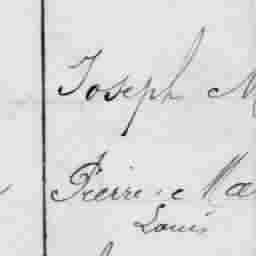 Joseph M
Pierre
Louis